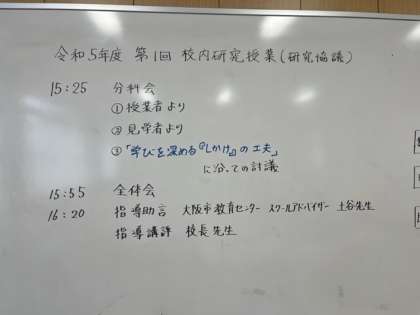 令和5年度 第1回 校内研究授業(研究協議)
15:25 分科会
① 授業者より
② 見学者より
③ 「学びを深める『しかけ』の工夫」
に沿っての討議
15:55 全体会
16:20 指導助言 大阪市教育センター スクールアドバイザー 土谷先生
指導講評 校長先生